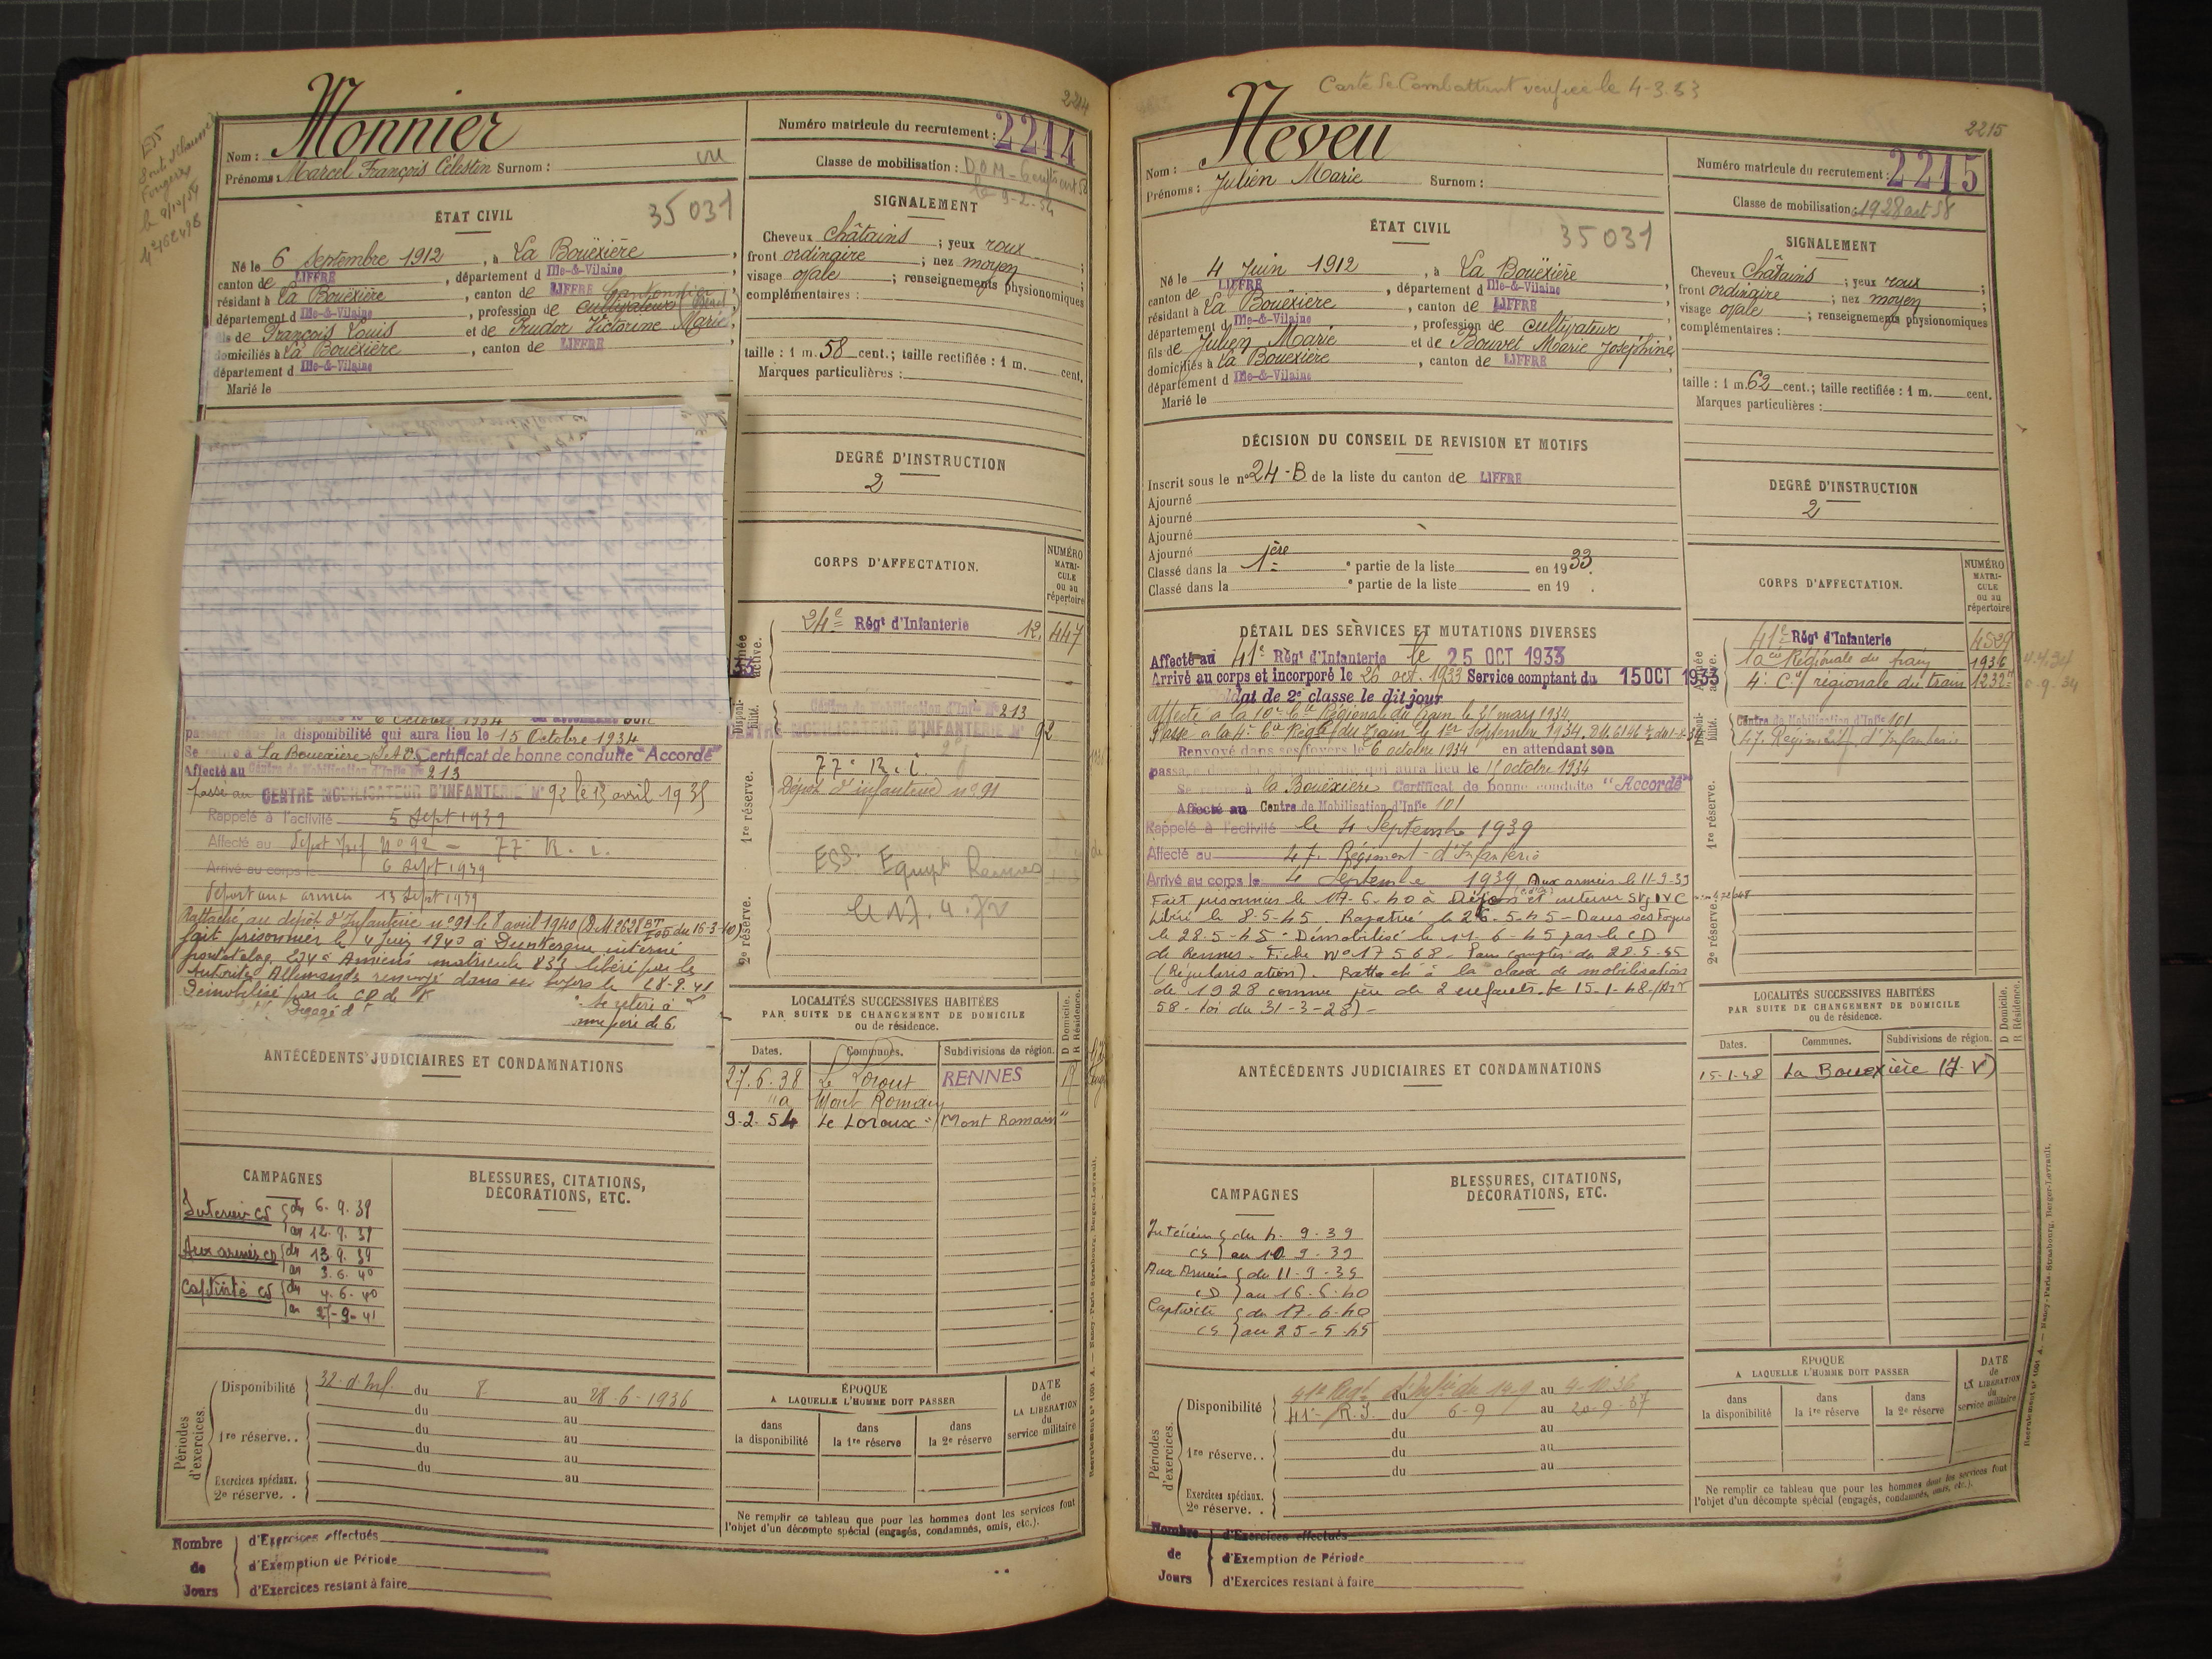 2214
Monnier
Nom :
Prénoms : Marcel François Célestin Surnom :
vu
Numéro matricule du recrutement : 2214
Classe de mobilisation :
le 9-2-54
ÉTAT CIVIL
35031
Né le 6 Septembre 1912, à La Bouëxière,
canton de LIFFRE, département d Ille-&-Vilaine
résidant à La Bouëxière, canton de LIFFRE
département d Ille-&-Vilaine, profession de cultivateur
fils de François Louis et de Prudor Victorine Marie,
domiciliés à La Bouëxière, canton de LIFFRE
département d Ille-&-Vilaine
Marié le
SIGNALEMENT
Cheveux châtains ; yeux roux ;
front ordinaire ; nez moyen ;
visage ovale ; renseignements physionomiques
complémentaires :
taille : 1 m. 58 cent.; taille rectifiée : 1 m. cent.
Marques particulières :
DEGRÉ D'INSTRUCTION
2
CORPS D'AFFECTATION.
NUMÉRO MATRI-CULE ou au répertoire
24e Régt d'Infanterie 12.447
Centre de Mobilisation d'Infie No 213
CENTRE MOBILISATEUR D'INFANTERIE No 92
77e R. i.
Dépot d'infanterie no 91
le 17 4.72
Disponi-bilité.
1re réserve.
2e réserve.
6 Octobre 1934 en attendant son
passage dans la disponibilité qui aura lieu le 15 Octobre 1934
Se retire à La Bouëxière Certificat de bonne conduite "Accordé"
Affecté au Centre de Mobilisation d'Infie No 213
passé au CENTRE MOBILISATEUR D'INFANTERIE No 92 le 15 avril 1935
Rappelé à l'activité 5 Sept 1939
Affecté au Dépot Inf no 92 - 77e R. i.
Arrivé au corps le 6 Sept 1939
départ aux armées 13 Sept 1939
Rattaché au dépot d'Infanterie no 91 le 8 avril 1940 (D.M. 2628 du 16-3-40)
fait prisonnier le 4 Juin 1940 à Dunkerque interné
frontstalag 234 à Amiens matricule 833 libéré par les
Autorités Allemandes renvoyé dans ses foyers le 28-9-41
Démobilisé par le CD de
Se retire à
Dégagé d
ANTÉCÉDENTS JUDICIAIRES ET CONDAMNATIONS
LOCALITÉS SUCCESSIVES HABITÉES
PAR SUITE DE CHANGEMENT DE DOMICILE
ou de résidence.
D Domicile. R Résidence.
Dates. Communes. Subdivisions de région.
27.6.38 Le Loroux RENNES
"a Mont Romain
9.2.54 Le Loroux Mont Romain "
CAMPAGNES
Intérieur CS du 6.9.39
au 12.9.39
Aux armées CD du 13.9.39
au 3.6.40
Captivité CS du 4.6.40
au 27-9-41
BLESSURES, CITATIONS,
DÉCORATIONS, ETC.
Périodes d'exercices.
Disponibilité 32. d'Inf. du 8 au 28-6-1936
du au
1re réserve. . du au
du au
du au
Exercices spéciaux. 2e réserve. . au
ÉPOQUE
A LAQUELLE L'HOMME DOIT PASSER
dans la disponibilité
dans la 1re réserve
dans la 2e réserve
DATE de LA LIBÉRATION du service militaire
Ne remplir ce tableau que pour les hommes dont les services font
l'objet d'un décompte spécial (engagés, condamnés, omis, etc.).
Nombre de Jours
d'Exercices effectués
d'Exemption de Période
d'Exercices restant à faire
Carte de Combattant vérifiée le 4-3-53
2215
Neveu
Nom :
Prénoms : Julien Marie Surnom :
Numéro matricule du recrutement : 2215
Classe de mobilisation : 1928 art 58
ÉTAT CIVIL
35031
Né le 4 Juin 1912, à La Bouëxière
canton de LIFFRE, département d Ille-&-Vilaine
résidant à La Bouëxière, canton de LIFFRE
département d Ille-&-Vilaine, profession de cultivateur
fils de Julien Marie et de Bouvet Marie Joséphine,
domiciliés à La Bouëxière, canton de LIFFRE
département d Ille-&-Vilaine
Marié le
SIGNALEMENT
Cheveux châtains ; yeux roux ;
front ordinaire ; nez moyen ;
visage ovale ; renseignements physionomiques
complémentaires :
taille : 1 m. 62 cent.; taille rectifiée : 1 m. cent.
Marques particulières :
DÉCISION DU CONSEIL DE REVISION ET MOTIFS
Inscrit sous le no 24-B de la liste du canton de LIFFRE
Ajourné
Ajourné
Ajourné
Ajourné
Classé dans la 1ère partie de la liste en 1933.
Classé dans la e partie de la liste en 19 .
DEGRÉ D'INSTRUCTION
2
CORPS D'AFFECTATION.
NUMÉRO MATRI-CULE ou au répertoire
41e Régt d'Infanterie 4539
10e Cie Régionale du train 1936
4e Cie régionale du train 1232
Centre de Mobilisation d'Infie 101
47e Régiment d'Infanterie
Disponi-bilité.
1re réserve.
2e réserve.
DÉTAIL DES SERVICES ET MUTATIONS DIVERSES
Affecté au 41e Régt d'Infanterie le 25 OCT 1933
Arrivé au corps et incorporé le 26 oct. 1933 Service comptant du 15 OCT 1933
Soldat de 2e classe le dit jour
Affecté à la 10e Cie Régionale du Train le 31 mars 1934
Passé à la 4e Cie Régle du Train le 1er Septembre 1934
Renvoyé dans ses foyers le 6 octobre 1934 en attendant son
passage dans la disponibilité qui aura lieu le 15 octobre 1934
Se retire à la Bouëxière Certificat de bonne conduite "Accordé"
Affecté au Centre de Mobilisation d'Infie 101
Rappelé à l'activité le 4 Septembre 1939
Affecté au 47e Régiment d'Infanterie
Arrivé au corps le 4 Septembre 1939 Aux armées le 11-9-39
Fait prisonnier le 17-6-40 à Dijon et interné Stg IV C
Libéré le 8-5-45. Rapatrié le 26-5-45 - Dans ses foyers
le 28-5-45. Démobilisé le 11-6-45 par le CD
de Rennes. Fiche No 17568. Pour compter du 28.5.45
(Régularisation). Rattaché à la classe de mobilisation
de 1928 comme père de 2 enfants le 15-1-48 (Art
58 - loi du 31-3-28) -
ANTÉCÉDENTS JUDICIAIRES ET CONDAMNATIONS
LOCALITÉS SUCCESSIVES HABITÉES
PAR SUITE DE CHANGEMENT DE DOMICILE
ou de résidence.
D Domicile. R Résidence.
Dates. Communes. Subdivisions de région.
15-1-48 La Bouexière (I-V)
CAMPAGNES
Intérieur du 4.9.39
CS au 10.9.39
Aux Armées du 11-9-39
CD au 16.6.40
Captivité du 17.6.40
CS au 25-5-45
BLESSURES, CITATIONS,
DÉCORATIONS, ETC.
Périodes d'exercices.
Disponibilité 41e Régt d'Infie du 14.9 au 4-10.36
41e R.I. du 6-9 au 20-9-37
du au
1re réserve. . du au
du au
Exercices spéciaux. 2e réserve. .
ÉPOQUE
A LAQUELLE L'HOMME DOIT PASSER
dans la disponibilité
dans la 1re réserve
dans la 2e réserve
DATE de LA LIBÉRATION du service militaire
Ne remplir ce tableau que pour les hommes dont les services font
l'objet d'un décompte spécial (engagés, condamnés, omis, etc.).
Nombre de Jours
d'Exercices effectués
d'Exemption de Période
d'Exercices restant à faire